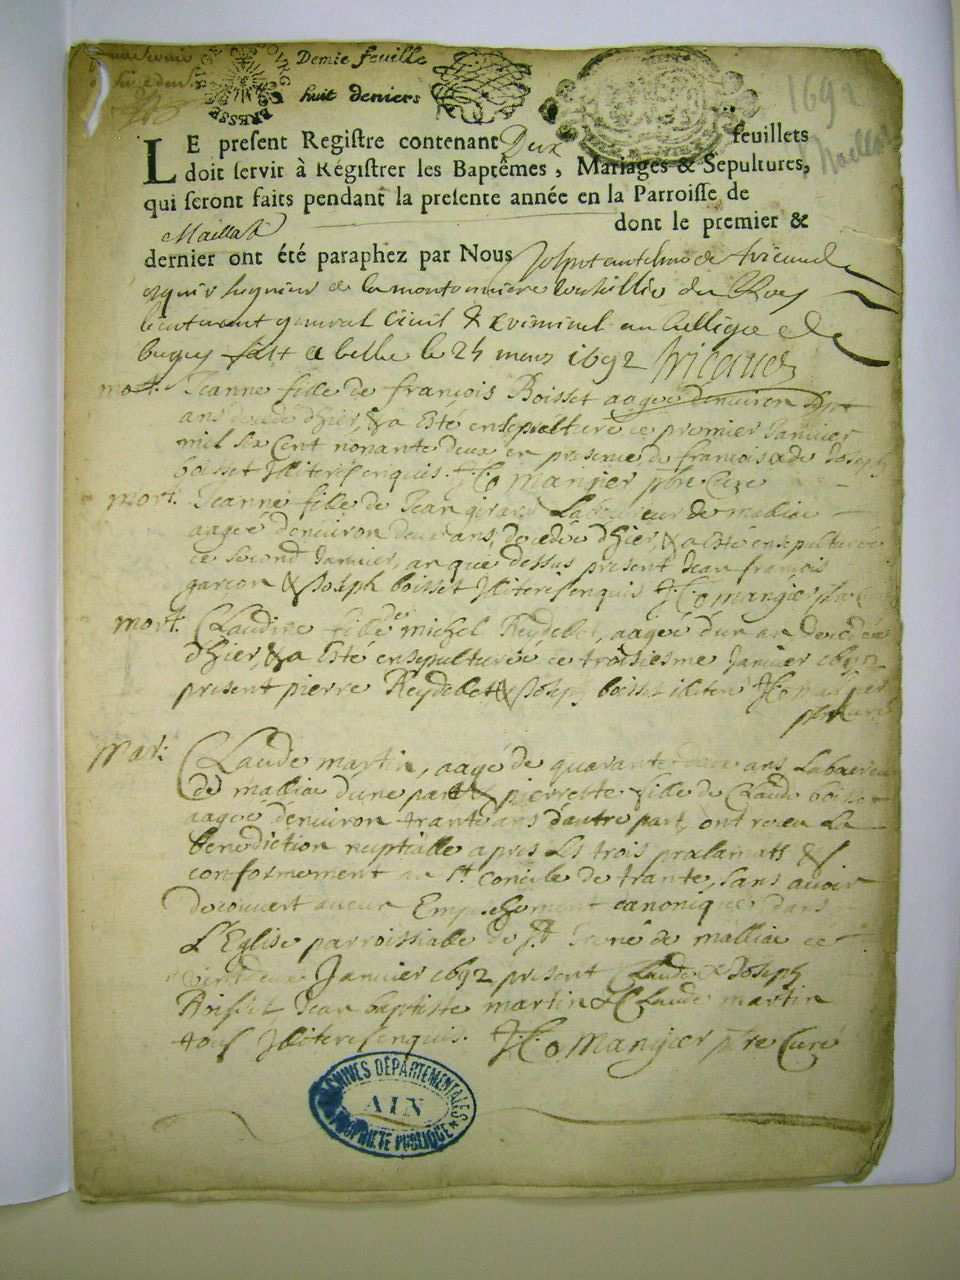 Demie feuille
huit deniers
1692
Maillat
LE present Registre contenant Deux feuillets
doit servir à Régistrer les Baptêmes, Mariages & Sepultures,
qui seront faits pendant la presente année en la Parroisse de
Maillat dont le premier &
dernier ont été paraphez par Nous
de la du Roy
lieutenant general Civil & Criminel au de
bugey fait a belley le 24 mars 1692
mort. Jeanne fille de françois Boisset aagée denuiron
ans decedée d'hier, & a esté ensepulturée ce premier Januier
mil six Cent nonante deux en presence de francois & de Joseph
boisset Illiteres enquis. manjier pbre Curé
mort. Jeanne fille de Jean girard Laboureur de malliac
aagée d'enuiron deux ans, decedée d'hier, & a esté ensepulturée
ce second Januier, an que dessus present Jean françois
garçon & Joseph boisset Illiteres enquis manjier
mort. Claudine fille de michel Reydellet, aagée d'un an decedée
d'hier, & a esté ensepulturée ce troisiesme Januier 1692
present pierre Reydellet & Joseph boisset illiteré
pbre curé
mar: Claude martin, aagé de quarante ans Laboureur
de malliac d'une part & pierrette fille de Claude boisset
aagée d'enuiron trante ans d'autre part, ont receu La
benediction nuptialle apres Les trois proclamats &
conformement au st. concile de trante, sans auoir
decouuert aucun Empechement canonique dans
L'Eglise parroissialle de malliac ce
vint deux Januier 1692 present Claude & Joseph
Boisset Jean baptiste martin & Claude martin
tous Illiteres enquis. manjier pbre Curé
ARCHIVES DÉPARTEMENTALES
AIN
PROPRIÉTÉ PUBLIQUE